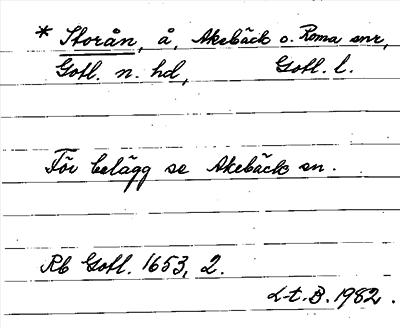 * Storån, å, Akebäck o. Roma snr,
Gotl. n. hd, Gotl. l.
För belägg se Akebäck sn.
Rb Gotl. 1653, 2.
L-t. B. 1982.